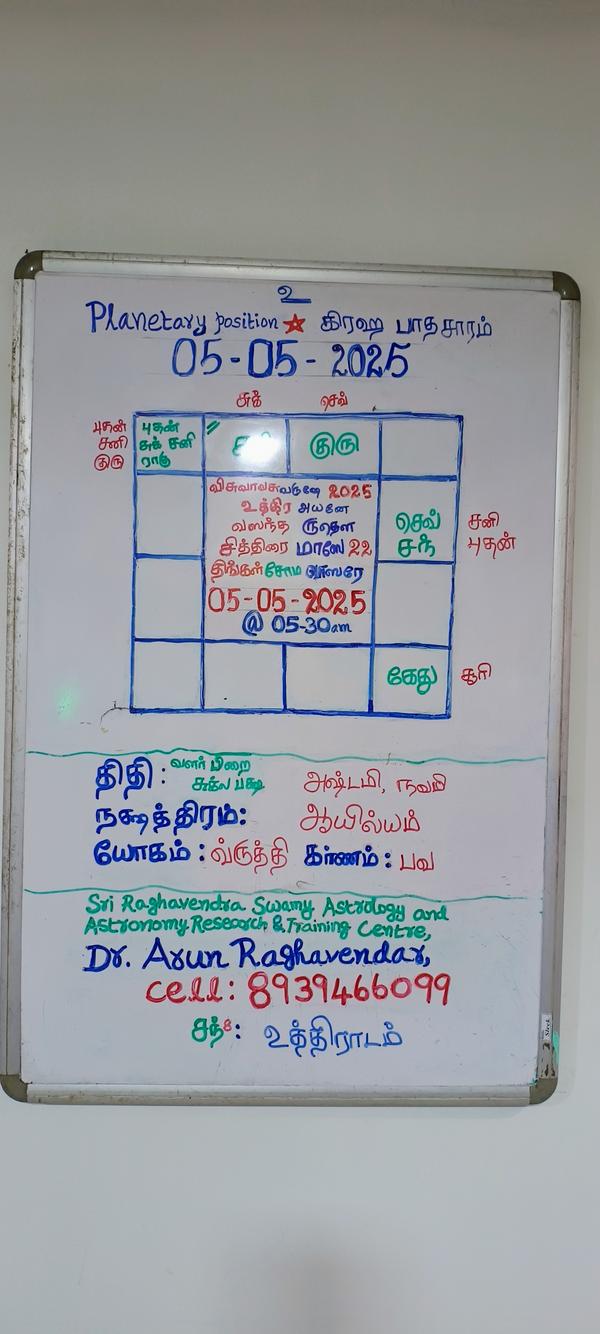 உ
Planetary position ★ கிரஹ பாதசாரம்
05-05-2025
சுக் செவ்
புதன்
சனி
குரு
புதன்
சுக் சனி
ராகு
குரு
விசுவாவசுவருஷே 2025
உத்திர அயனே
வஸந்த ருதௌ
சித்திரை மாஸே 22
திங்கள் சோம வாஸரே
05-05-2025
@ 05-30am
செவ்
சந்
சனி
புதன்
கேது
சூரி
திதி: வளர் பிறை
சுக்ல பக்ஷ
அஷ்டமி, நவமி
நக்ஷத்திரம்: ஆயில்யம்
யோகம்: வ்ருத்தி கர்ணம்: பவ
Sri Raghavendra Swamy Astrology and
Astronomy Research & Training Centre,
Dr. Arun Raghavendar,
Cell: 8939466099
சந் 8: உத்திராடம்